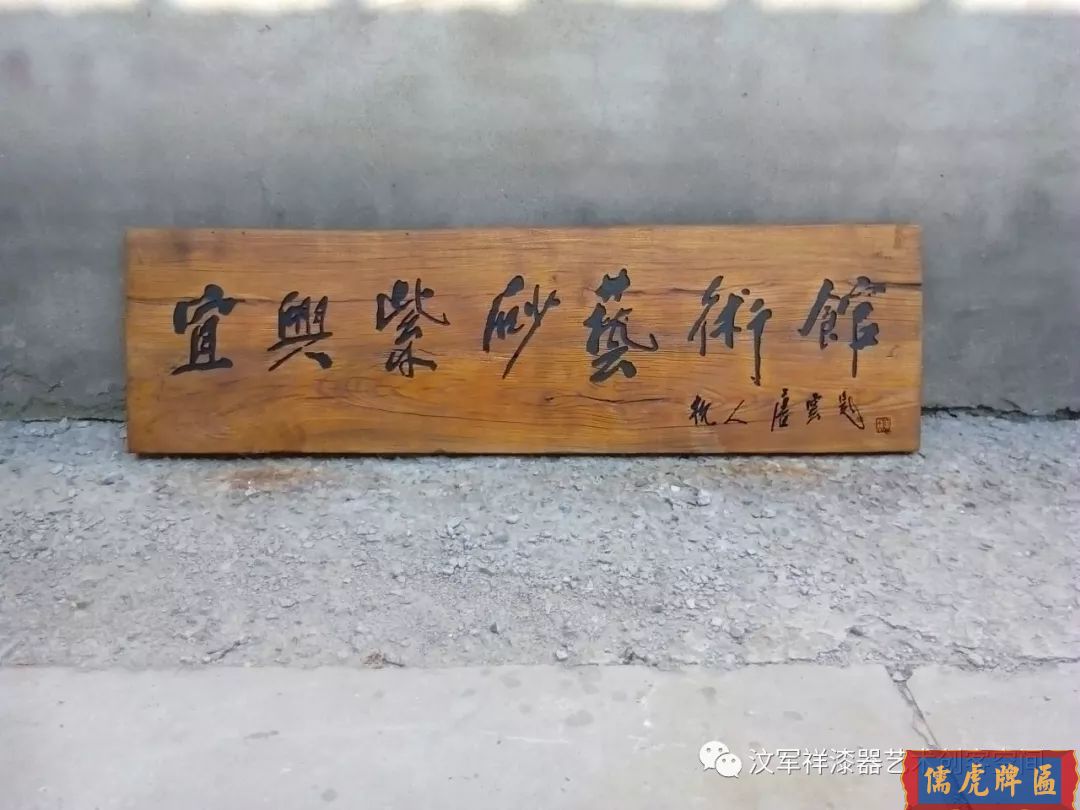 宜興紫砂藝術館
杭人 唐雲題
汶军祥漆器艺术创客空间
儒虎牌匾